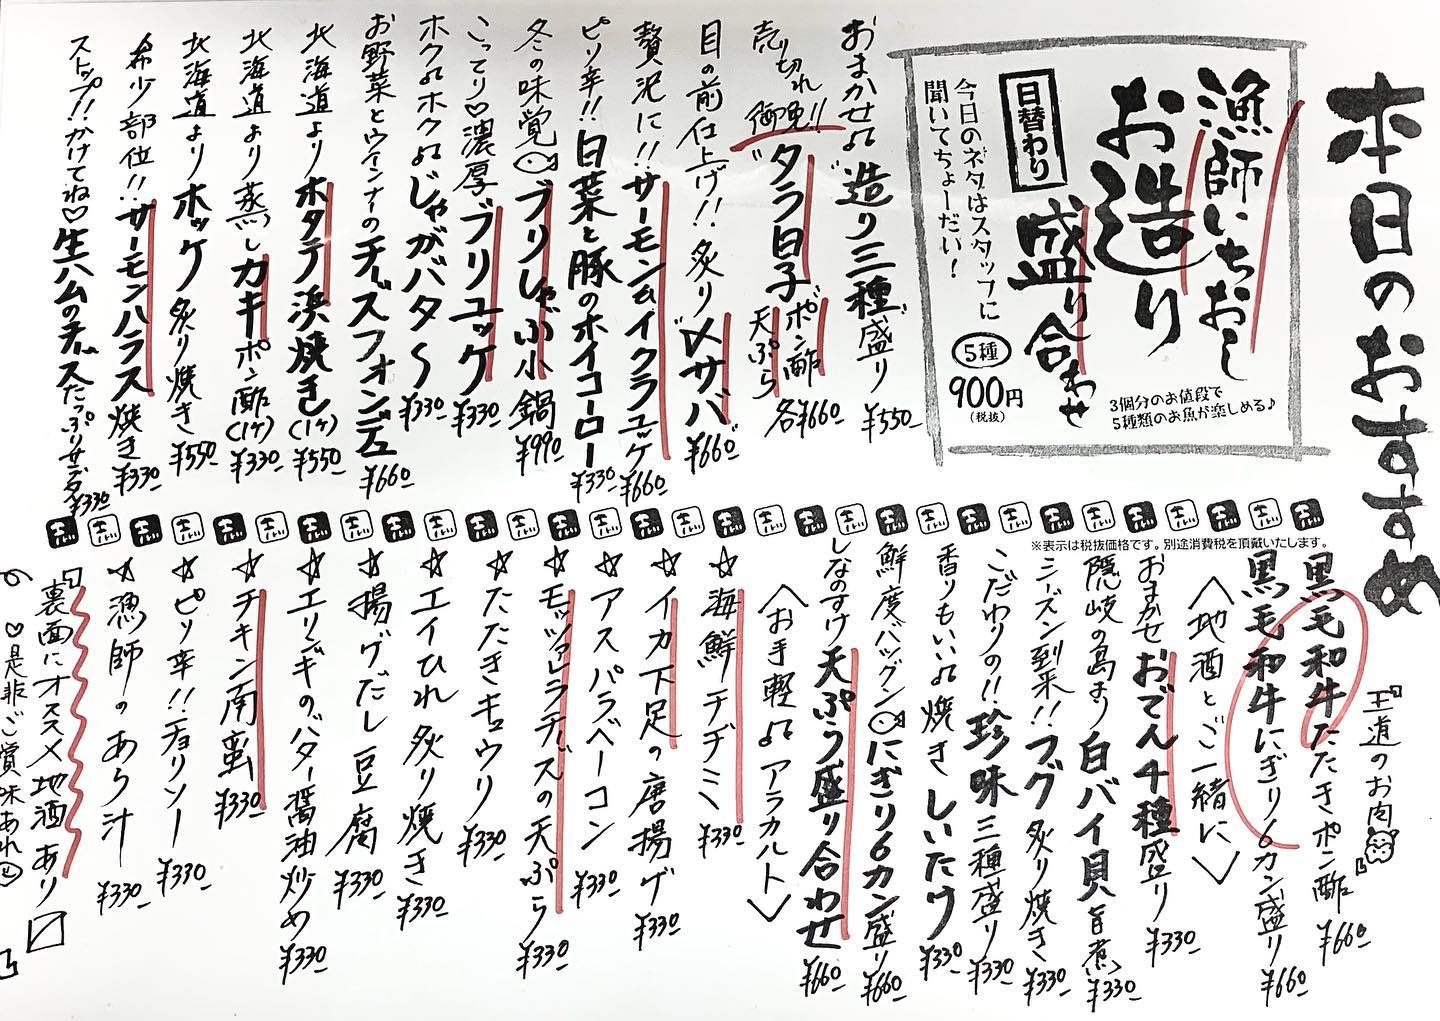 本日のおすすめ
漁師いちおし
お造り
盛り合わせ
日替わり
今日のネタはスタッフに
聞いてちょーだい!
5種
900円
(税抜)
3個分のお値段で
5種類のお魚が楽しめる♪
おまかせ 造り三種盛り ¥550
売り切れ御免!! タラ白子 ポン酢 天ぷら 各¥660
目の前仕上げ!! 炙り〆サバ ¥660
贅沢に!! サーモンとイクラユッケ ¥660
ピリ辛!! 白菜と豚のホイコーロー ¥330
冬の味覚 ブリしゃぶ小鍋 ¥990
こってり♡濃厚 ブリユッケ ¥330
ホクホク じゃがバター ¥330
お野菜とウインナーのチーズフォンデュ ¥660
北海道より ホタテ浜焼き(1ヶ) ¥550
北海道より 蒸しカキポン酢(1ヶ) ¥330
北海道より ホッケ炙り焼き ¥550
希少部位!! サーモンハラス焼き ¥330
ストップ!!かけてね♡生ハムのチーズたっぷりサラダ ¥330
※表示は税抜価格です。別途消費税を頂戴いたします。
王道のお肉
黒毛和牛たたきポン酢 ¥660
黒毛和牛にぎり6カン盛り ¥660
<地酒とご一緒に>
おまかせ おでん4種盛り ¥330
隠岐の島より 白バイ貝旨煮 ¥330
シーズン到来!! フグ炙り焼き ¥330
こだわりの!! 珍味三種盛り ¥330
香りもいい 焼きしいたけ ¥330
鮮度バツグン にぎり6カン盛り ¥660
しなのすけ 天ぷら盛り合わせ ¥660
<お手軽 アラカルト>
☆海鮮チヂミ ¥330
☆イカ下足の唐揚げ ¥330
☆アスパラベーコン ¥330
☆モッツァレラチーズの天ぷら ¥330
☆たたきキュウリ ¥330
☆エイひれ炙り焼き ¥330
☆揚げだし豆腐 ¥330
☆エリンギのバター醤油炒め ¥330
☆チキン南蛮 ¥330
☆ピリ辛!!チョリソー ¥330
☆漁師のあら汁 ¥330
裏面にオススメ地酒あり
♡是非ご賞味あれ